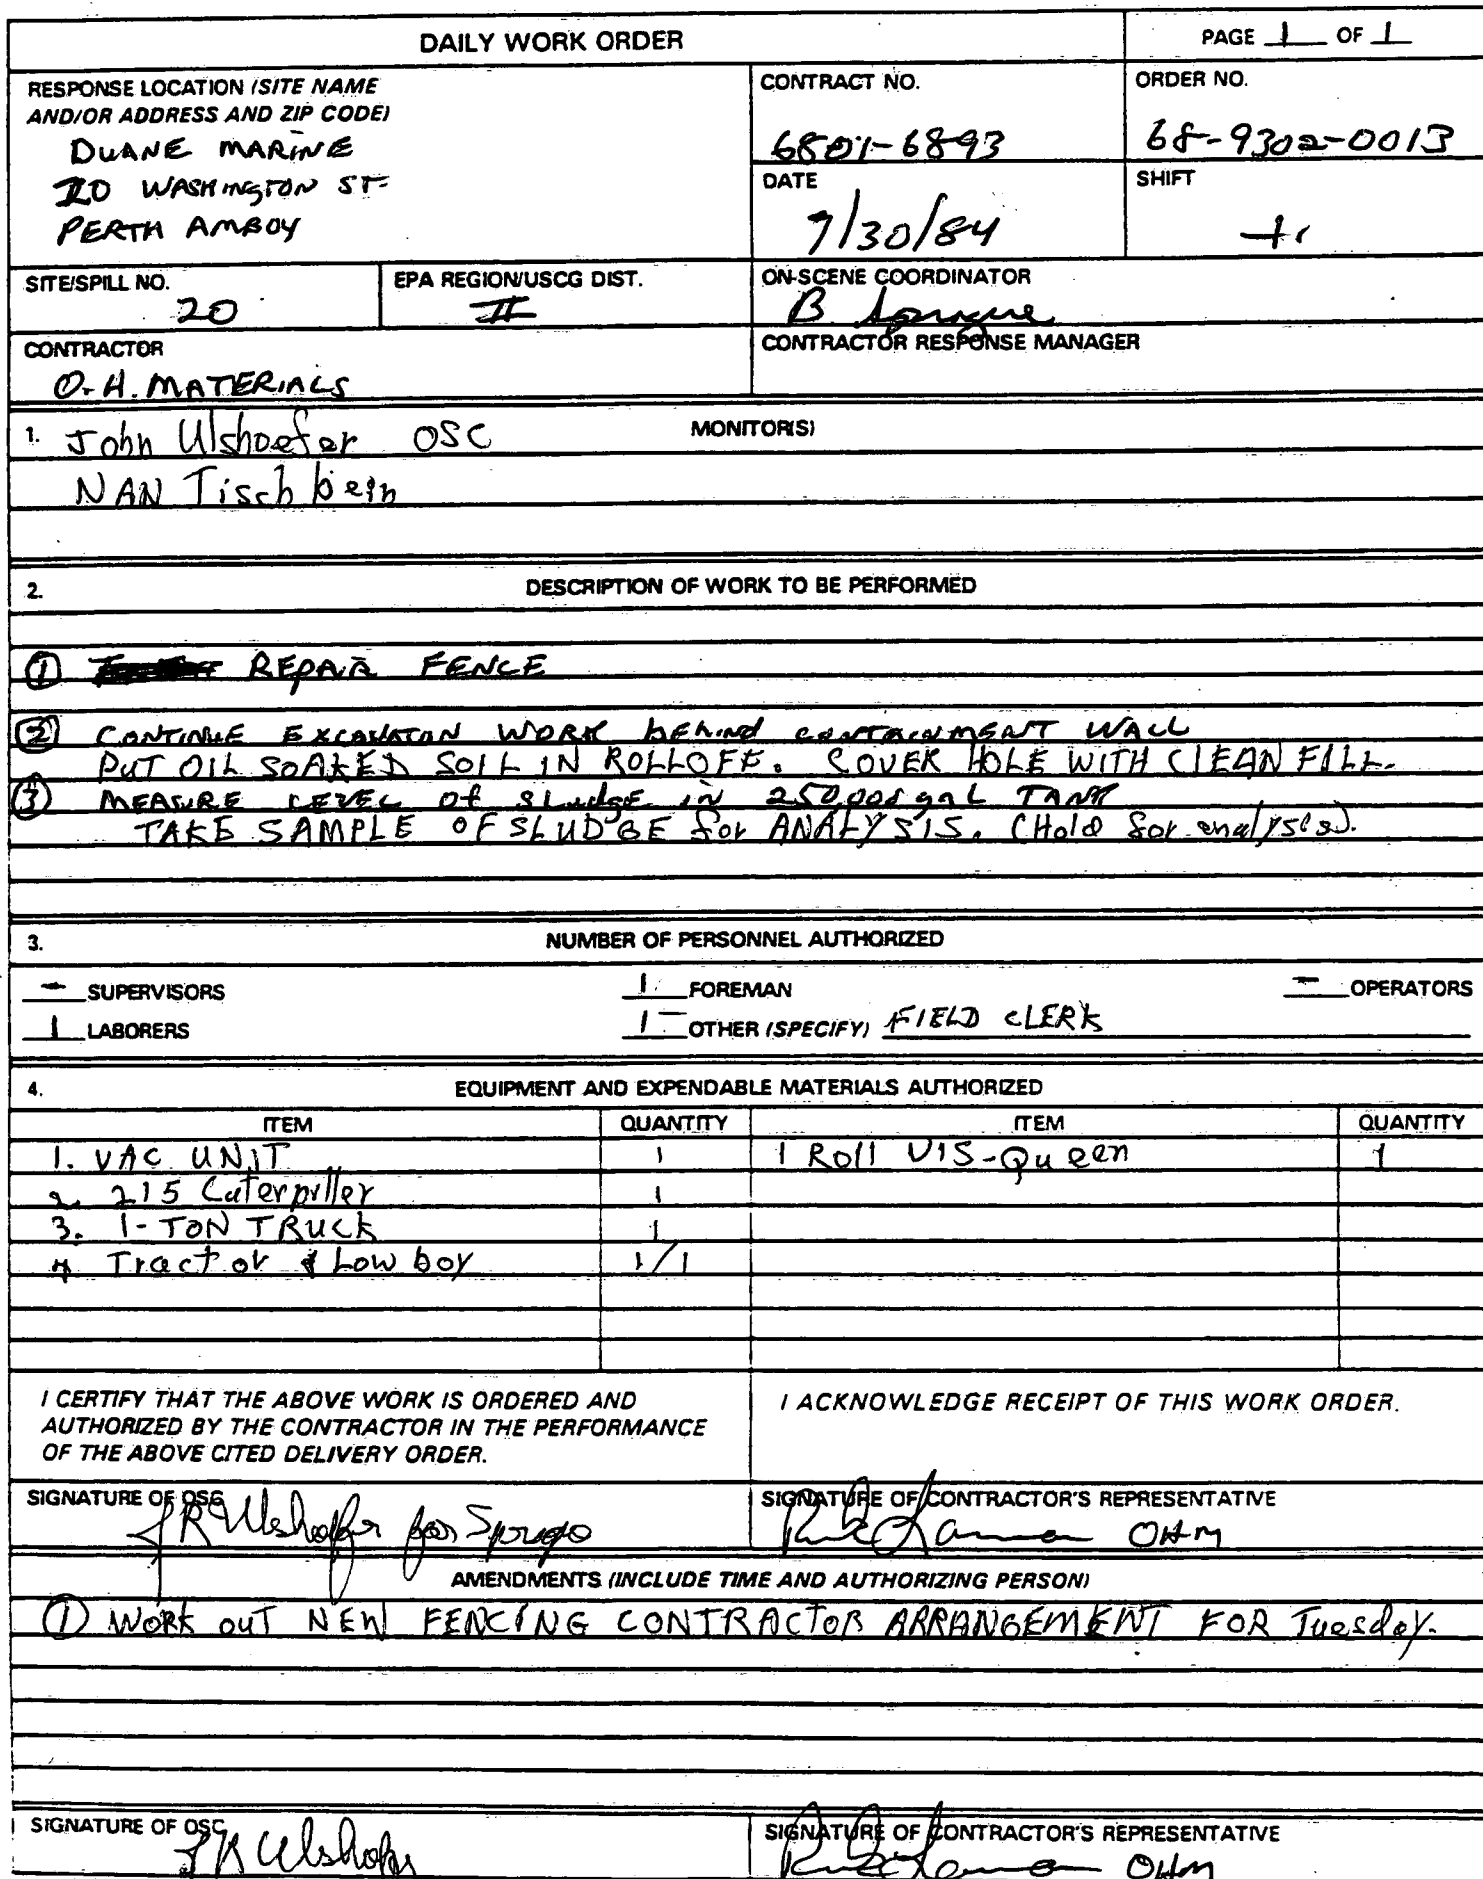 DAILY WORK ORDER
PAGE 1 OF 1
RESPONSE LOCATION (SITE NAME
AND/OR ADDRESS AND ZIP CODE)
DUANE MARINE
20 WASHINGTON ST.
PERTH AMBOY
CONTRACT NO.
6801-6893
ORDER NO.
68-9302-0013
DATE
7/30/84
SHIFT
SITE/SPILL NO.
20
EPA REGION/USCG DIST.
II
ON-SCENE COORDINATOR
B Sprague
CONTRACTOR
O.H. MATERIALS
CONTRACTOR RESPONSE MANAGER
1. MONITOR(S)
John Ulshoefer OSC
NAN Tischbein
2. DESCRIPTION OF WORK TO BE PERFORMED
① REPAIR FENCE
② CONTINUE EXCAVATON WORK behind CONTAINMENT WALL
PUT OIL SOAKED SOIL IN ROLLOFF. COVER HOLE WITH CLEAN FILL.
③ MEASURE LEVEL of sludge in 250,000 gal TANK
TAKE SAMPLE OF SLUDGE for ANALYSIS. (Hold for analysis).
3. NUMBER OF PERSONNEL AUTHORIZED
- SUPERVISORS 1 FOREMAN - OPERATORS
1 LABORERS 1 OTHER (SPECIFY) FIELD CLERK
4. EQUIPMENT AND EXPENDABLE MATERIALS AUTHORIZED
ITEM QUANTITY ITEM QUANTITY
1. VAC UNIT 1 1 Roll VIS-Queen 1
2. 215 Caterpiller 1
3. 1-TON TRUCK 1
4. Tractor & Low boy 1/1
I CERTIFY THAT THE ABOVE WORK IS ORDERED AND
AUTHORIZED BY THE CONTRACTOR IN THE PERFORMANCE
OF THE ABOVE CITED DELIVERY ORDER.
I ACKNOWLEDGE RECEIPT OF THIS WORK ORDER.
SIGNATURE OF OSC
JR Ulshoefer for Sprague
SIGNATURE OF CONTRACTOR'S REPRESENTATIVE
OHM
AMENDMENTS (INCLUDE TIME AND AUTHORIZING PERSON)
① WORK OUT NEW FENCING CONTRACTOR ARRANGEMENT FOR Tuesday.
SIGNATURE OF OSC
JR Ulshoefer
SIGNATURE OF CONTRACTOR'S REPRESENTATIVE
OHM